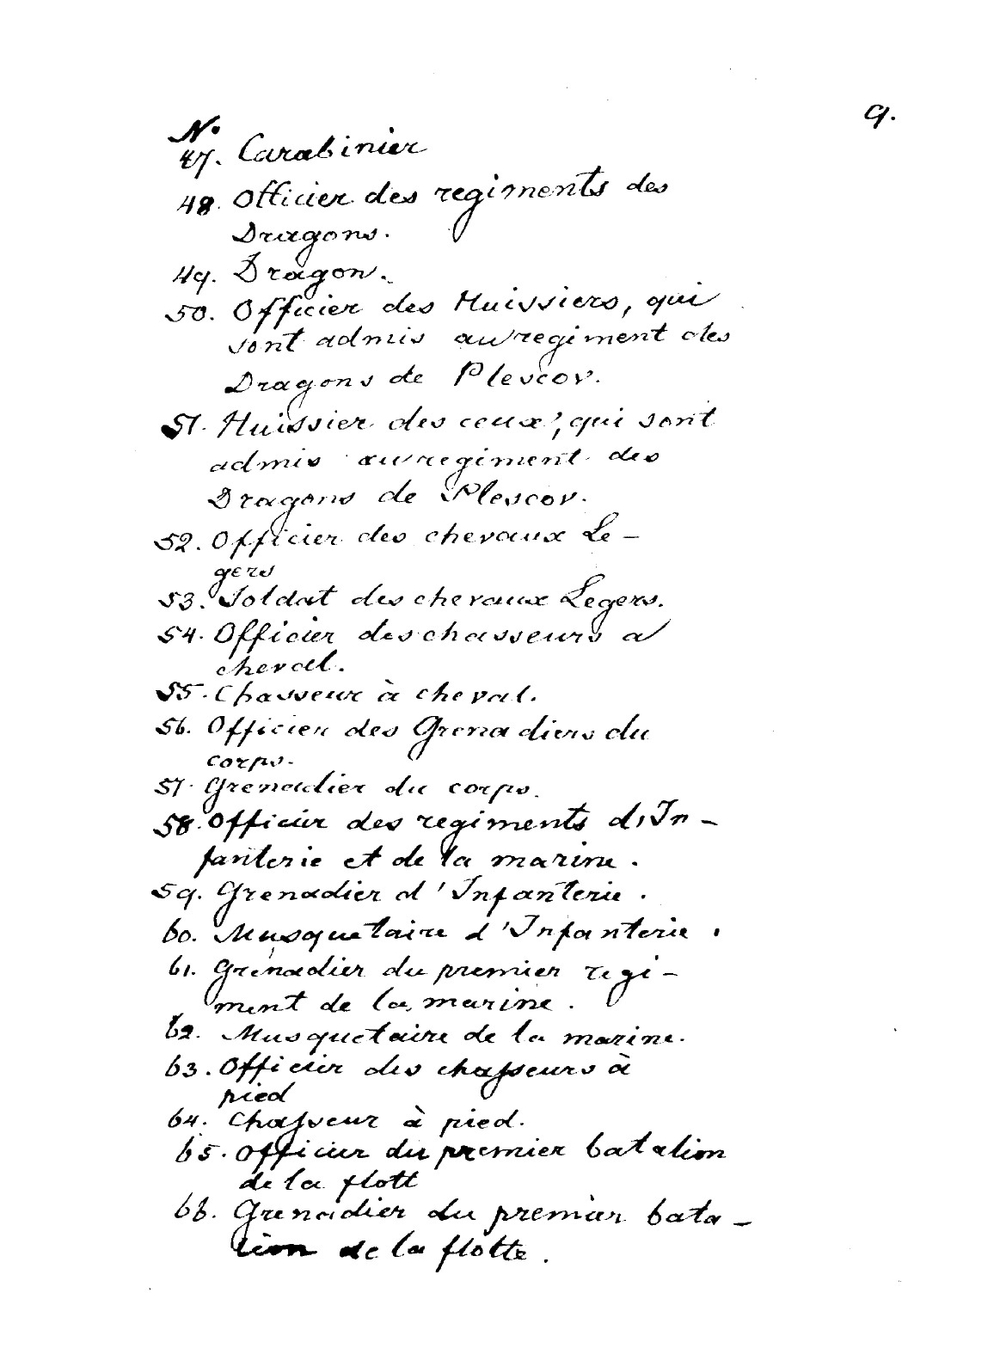 9.
No
47. Carabinier
48. Officier des regiments des
Dragons.
49. Dragon.
50. Officier des Huissiers, qui
sont admis au regiment des
Dragons de Plescov.
51. Huissier des ceux, qui sont
admis au regiment des
Dragons de Plescov.
52. Officier des chevaux Le-
gers
53. Soldat des chevaux Legers.
54. Officier des chasseurs a
cheval.
55. Chasseur à cheval.
56. Officier des Grenadiers du
corps.
57. Grenadier du corps.
58. Officier des regiments d'In-
fanterie et de la marine.
59. Grenadier d'Infanterie.
60. Musquetaire d'Infanterie.
61. Grenadier du premier regi-
ment de la marine.
62. Musquetaire de la marine.
63. Officier des chasseurs à
pied
64. Chasseur à pied.
65. Officier du premier batalion
de la flott
66. Grenadier du premier bata-
lion de la flotte.